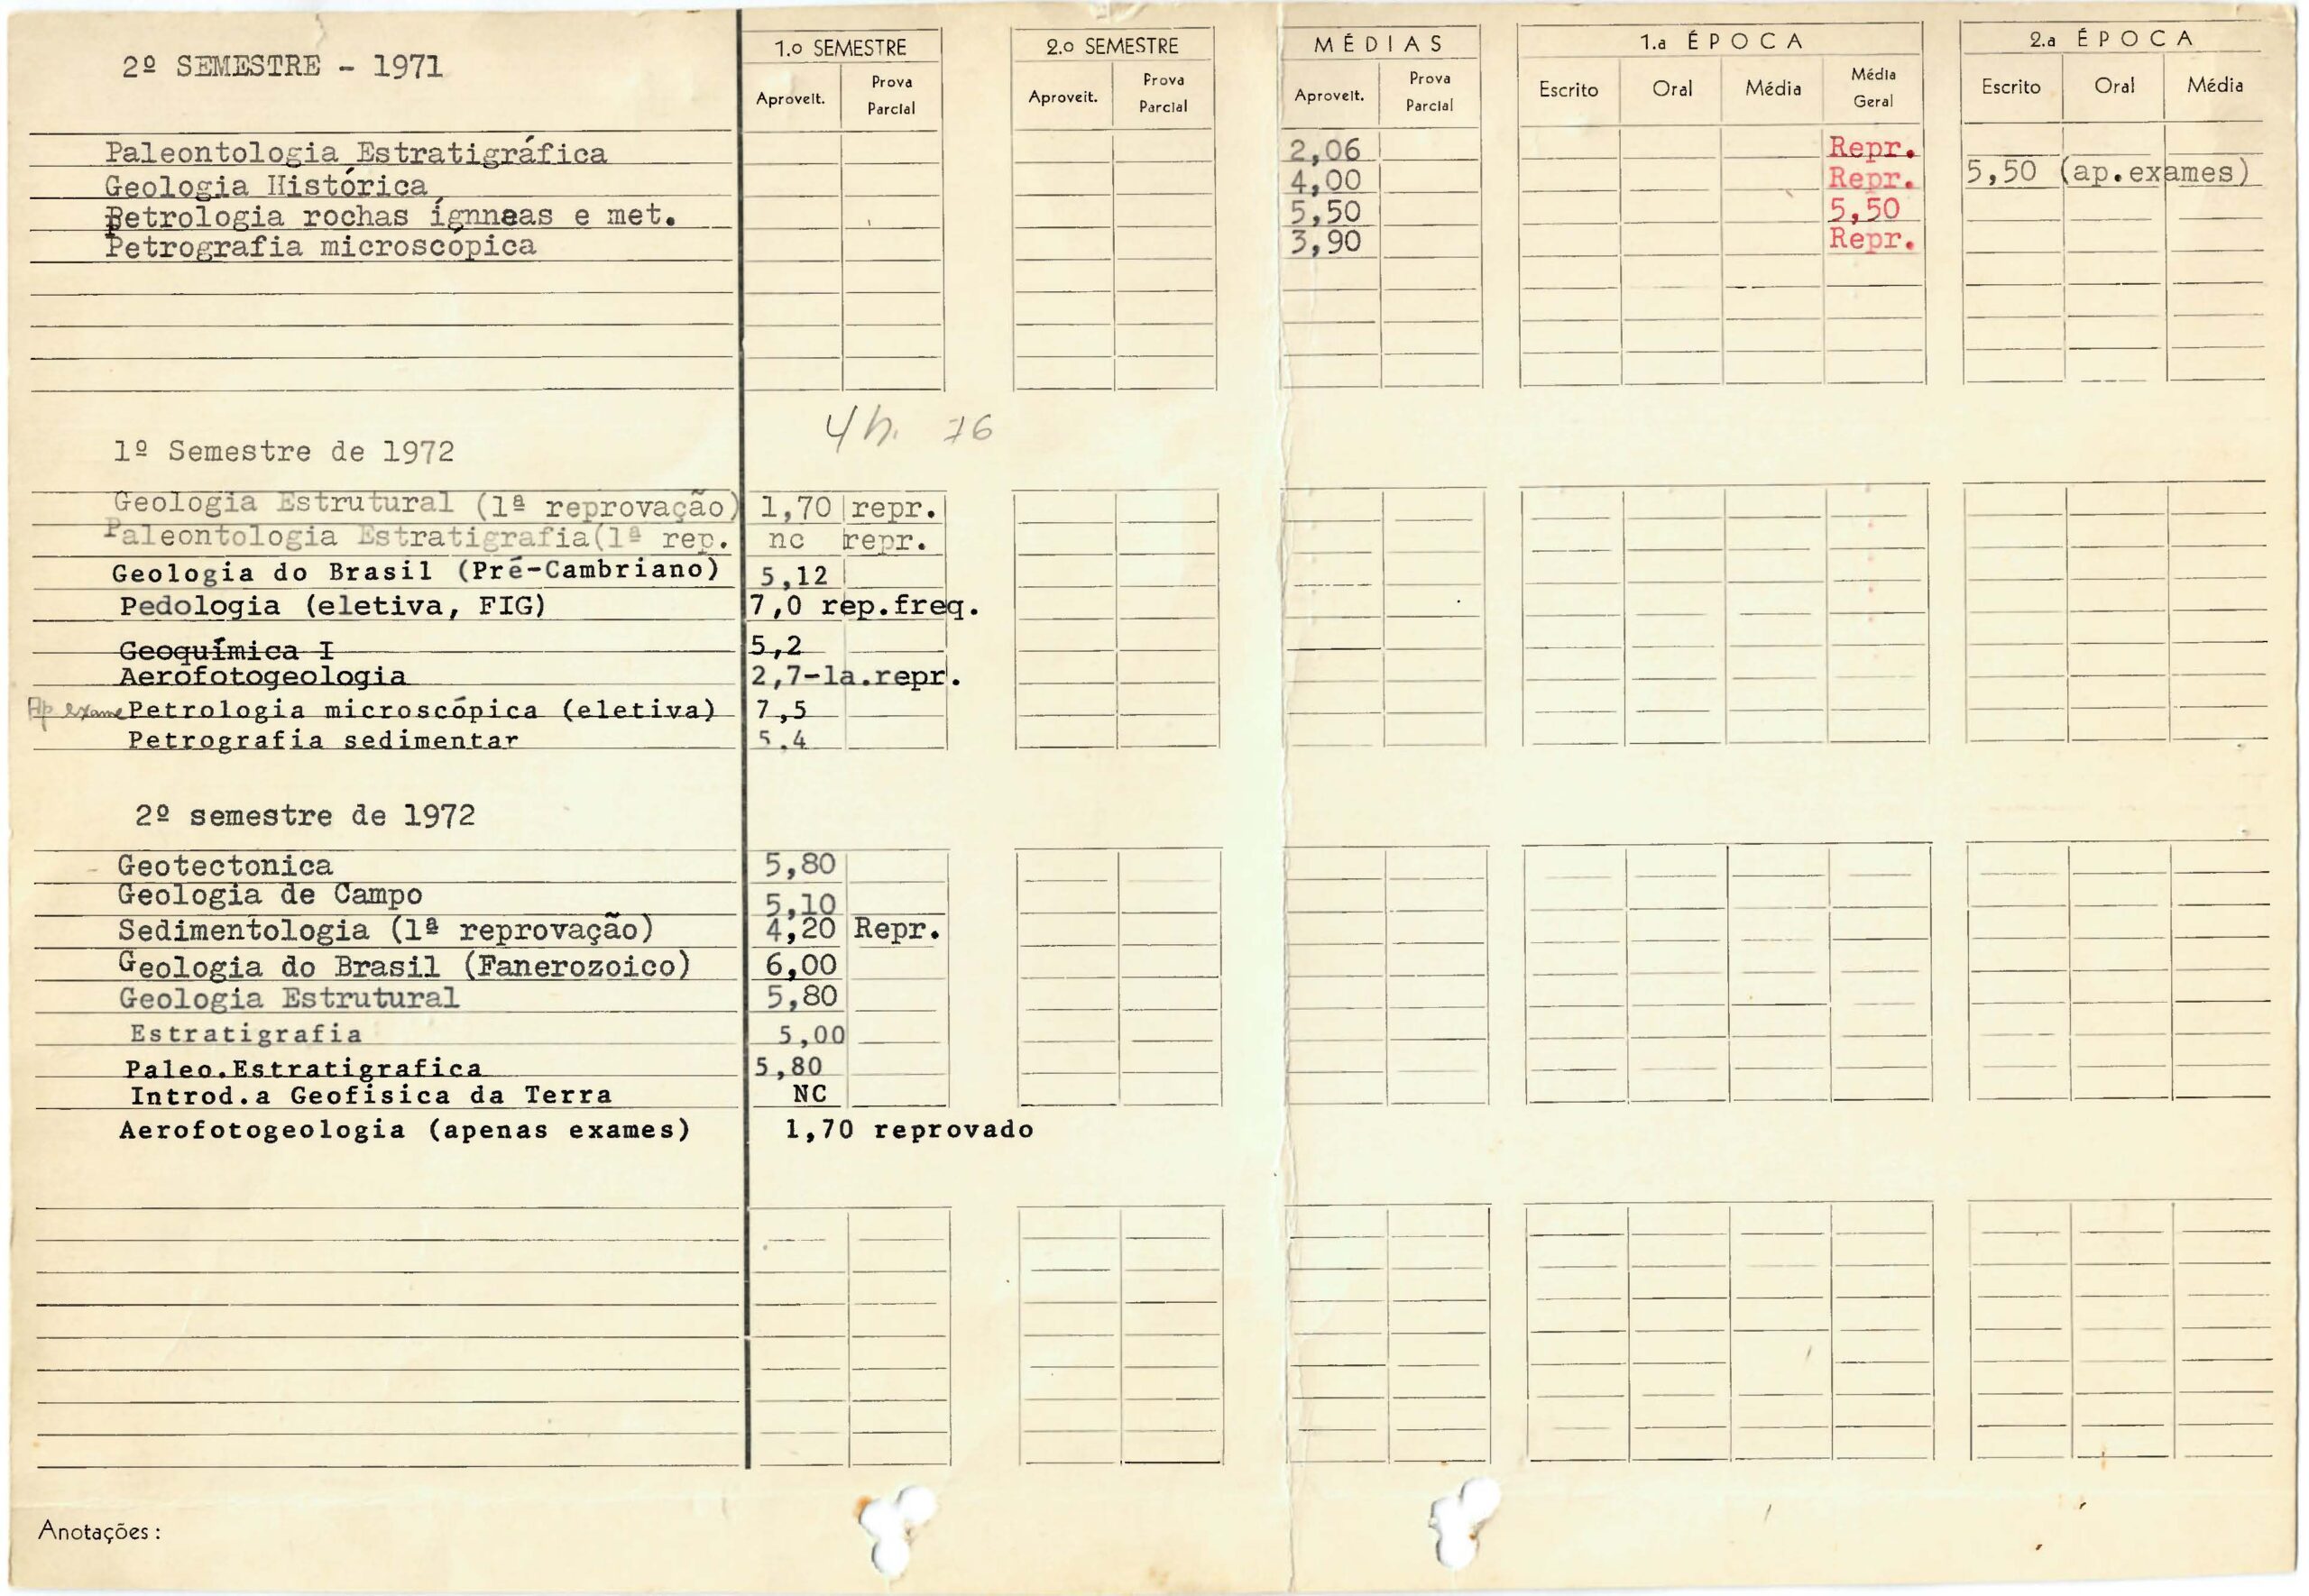 2º SEMESTRE - 1971
1.o SEMESTRE 2.o SEMESTRE MÉDIAS 1.a ÉPOCA 2.a ÉPOCA
Aproveit. Prova Parcial Aproveit. Prova Parcial Aproveit. Prova Parcial Escrito Oral Média Média Geral Escrito Oral Média
Paleontologia Estratigráfica 2,06 Repr.
Geologia Histórica 4,00 Repr. 5,50 (ap.exames)
Petrologia rochas ígnneas e met. 5,50 5,50
Petrografia microscópica 3,90 Repr.
4h. 76
1º Semestre de 1972
Geologia Estrutural (1ª reprovação) 1,70 repr.
Paleontologia Estratigrafia(1ª rep. nc repr.
Geologia do Brasil (Pré-Cambriano) 5,12
Pedologia (eletiva, FIG) 7,0 rep.freq.
Geoquímica I 5,2
Aerofotogeologia 2,7-la.repr.
Ap exame Petrologia microscópica (eletiva) 7,5
Petrografia sedimentar 5.4
2º semestre de 1972
- Geotectonica 5,80
Geologia de Campo 5,10
Sedimentologia (1ª reprovação) 4,20 Repr.
Geologia do Brasil (Fanerozoico) 6,00
Geologia Estrutural 5,80
Estratigrafia 5,00
Paleo.Estratigrafica 5,80
Introd.a Geofisica da Terra NC
Aerofotogeologia (apenas exames) 1,70 reprovado
Anotações: